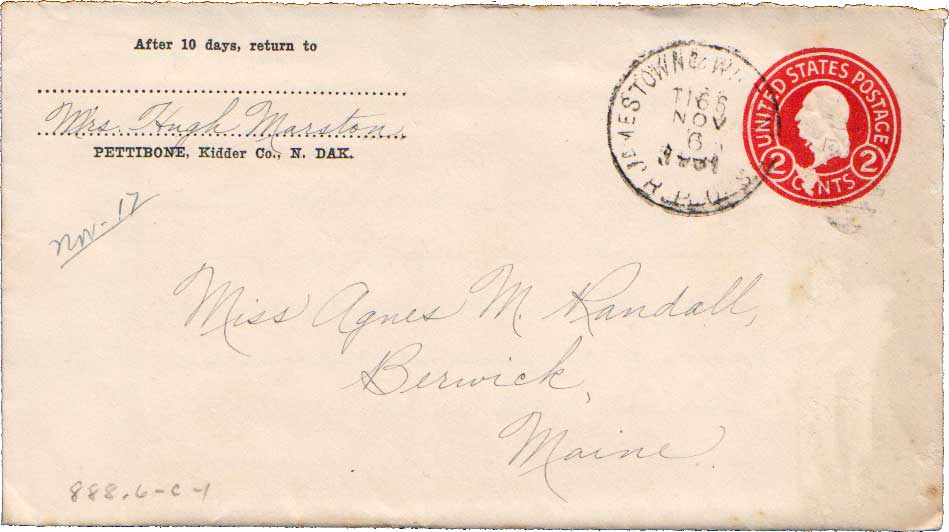 After 10 days, return to
Mrs. Hugh Marston
PETTIBONE, Kidder Co., N. DAK.
JAMESTOWN &
NOV
6
R.P.O.
UNITED STATES POSTAGE
2 CENTS 2
Nov. 17
Miss Agnes M. Randall,
Berwick,
Maine.
888.6-c-1